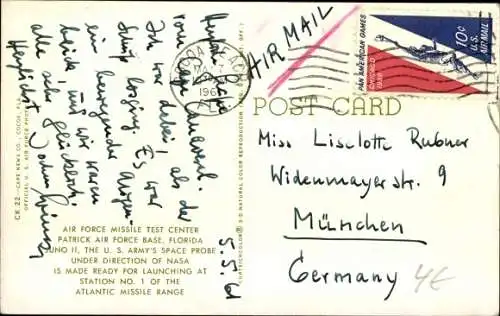 AIR MAIL
PAN AMERICAN GAMES
CHICAGO
1959
10¢
U.S.
AIRMAIL
COCOA BEACH
196
POST CARD
Miss Liselotte Rubner
Widenmayerstr. 9
München
Germany
4€
Herzliche Grüße
vom Cape Canaveral.
Ich war dabei, als der
Schuß losging. Es war
ein bewegender Augen-
blick, und wir waren
alle sehr glücklich.
Herzlichst
5.5.61
AIR FORCE MISSILE TEST CENTER
PATRICK AIR FORCE BASE, FLORIDA
JUNO II, THE U. S. ARMY'S SPACE PROBE
UNDER DIRECTION OF NASA
IS MADE READY FOR LAUNCHING AT
STATION NO. 1 OF THE
ATLANTIC MISSILE RANGE
CK.22 - CAPE NEWS CO. - COCOA, FLA.
OFFICIAL U. S. AIR FORCE PHOTO